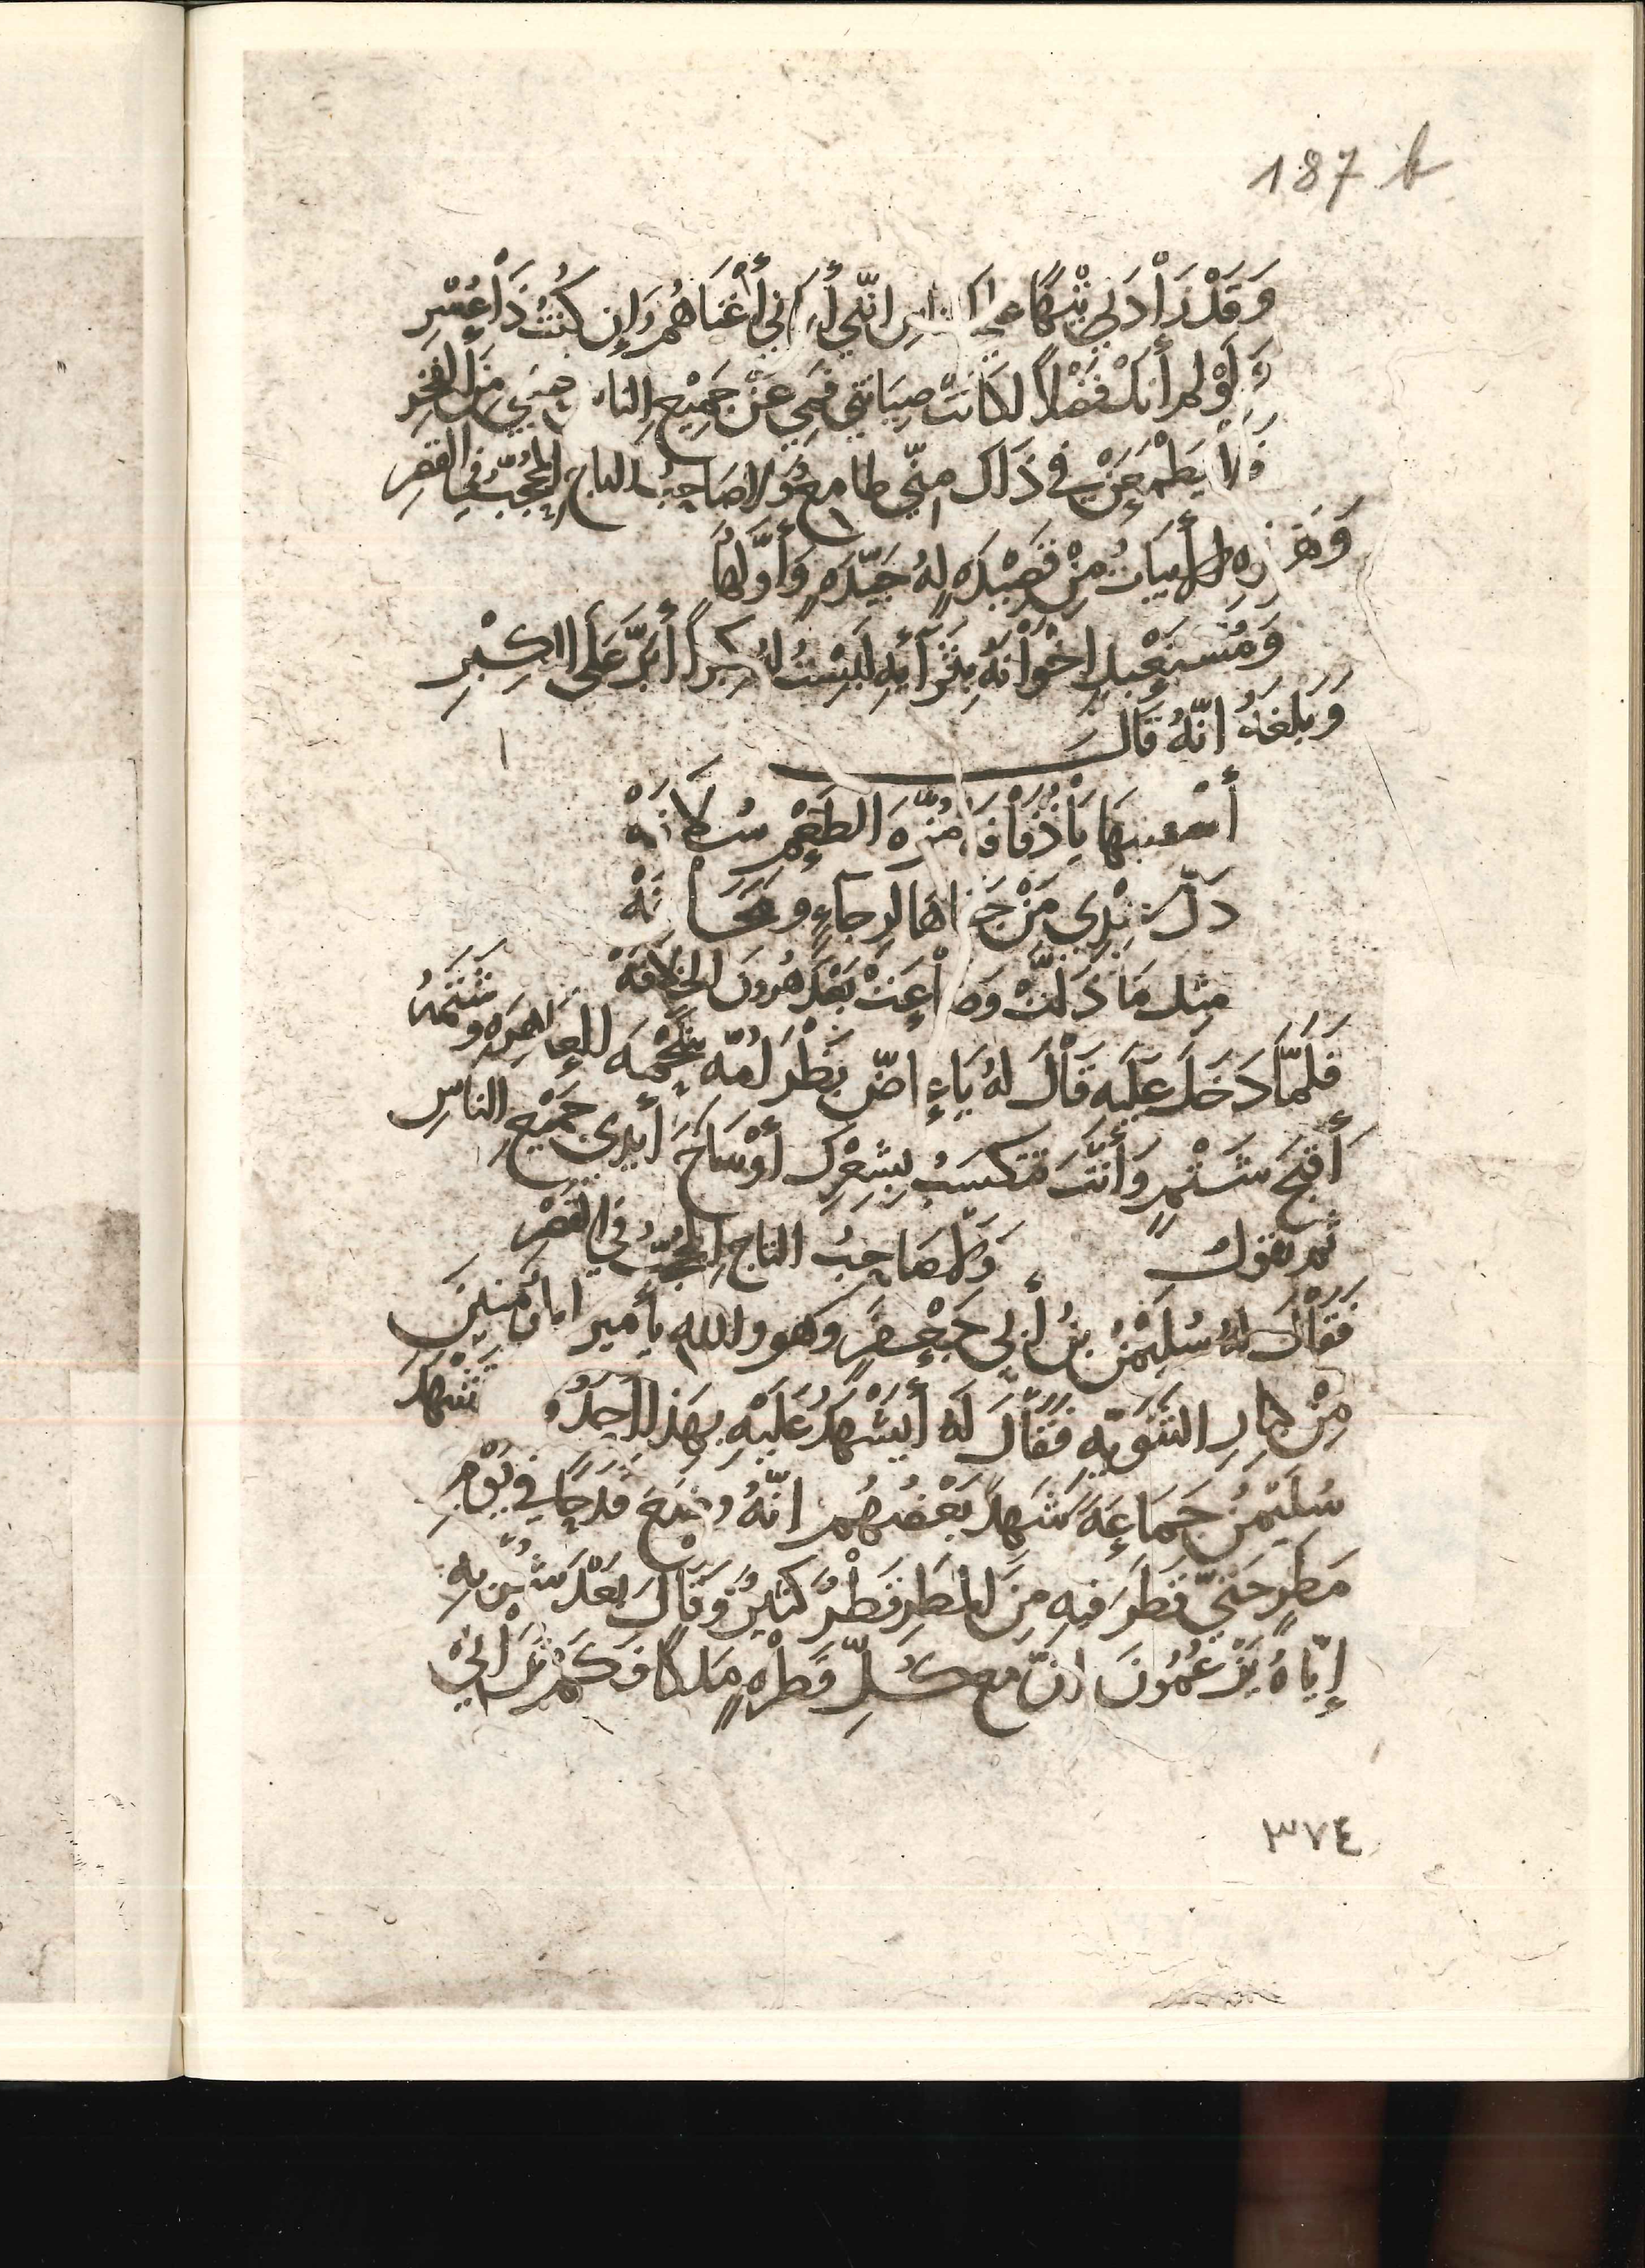 187 b
وَقَدْ زَادَنِي تِيْهًا على الناس انّني أَرَانِي أَغْنَاهُمْ وَإِن كُنْتُ ذَا عُسْرِ
وَلَوْ لم أَنَلْ فَضْلاً لكَانَتْ صِيَانَتِي فَمِي عَنْ جَمِيْعِ الناس حسبي مِنَ الفَخْرِ
فَلا يَطْمَعَنْ في ذَاكَ مِنّي طامعٌ وَلا صَاحِبُ التاجِ المُحَجَّبُ فِي القَصْرِ
وَهَذِهِ الأَبيَاتُ مِنْ قَصِيْدَةٍ لهُ جَيّدَةٍ وَأَوّلُهَا
وَمُسْتَعْبِدٍ اخْوَانَهُ بِثَرَآئِهِ لَبِسْتُ لهُ كِبراً أَبَرَّ عَلَى الكِبْرِ
وَبَلَغَهُ انّهُ قَالَ
أَسْقنيهَا يَا ذُفَافَه مُزّهَ الطَعْمِ سُلَافَهْ
ذَلّ عِنْدِي مَنْ جَفَاهَا لرجاءٍ و مَخَافَهْ
مِثل مَا ذَلّتْ وَضَاعَتْ بَعْدَ هرُونَ الخِلَافَهْ
فَلَمّا دَخَلَ عَلَيه قَالَ لهُ يَا عَاضّ بَظْرَ أُمّه للعَاهِرَهِ وَشَتَمَهُ
أَقْبَحَ شَتْمٍ وَأَنْتَ تَتَكسّبُ بِشِعْرِكَ أَوْسَاخَ أَيْدِي جَمِيْعِ الناسِ
ثم تقول وَلَا صَاحِبُ التاجِ المُحَجّبُ فِي القَصْرِ
فَقَالَ لهُ سُلَيْمٰنُ بنُ أَبي جَعْفَرٍ وَهو واللهِ يا أَمير المُؤمنِينَ
مِنْ كِبَارِ الثّنَوِيّهِ فَقَالَ لَهُ أَيَشْهَدُ عَلَيْهِ بِهَذا أَحَدٌ فشَهِدَ
سُلَيْمٰنُ جَمَاعَهً شَهِدَ بَعْضُهُم انّهُ وَضَعَ قَدَحًا فِي يَوْمِ
مَطِرٍ حَتّى قَطَرَ فِيهِ مِنَ المَطَرِ قَطْرٌ كثيرٌ وَقَالَ بَعْدَ شُرْبِهِ
إِيّاهُ يَزْعُمُونَ انّ مع كُلّ قَطْرَهٍ مَلكًا فَكَمْ تَرَانِي
٣٧٤